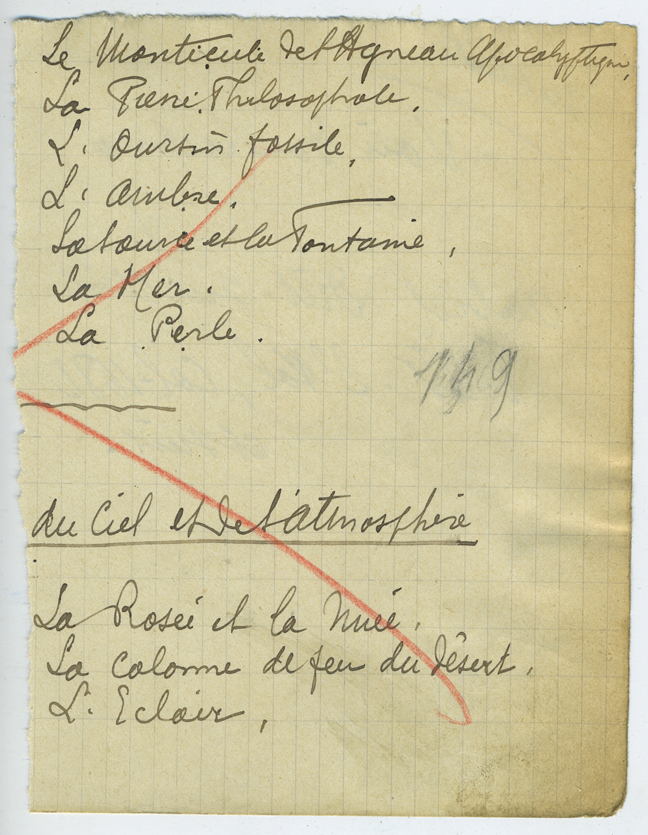 Le Monticule de l'Agneau Apocalyptique,
La Pierre Philosophale,
L'Oursin fossile,
L'Ambre,
La Source et la Fontaine,
La Mer.
La Perle.
149
du Ciel et de l'Atmosphère
La Rosée et la Nuée,
La colonne de feu du désert,
L'Eclair,